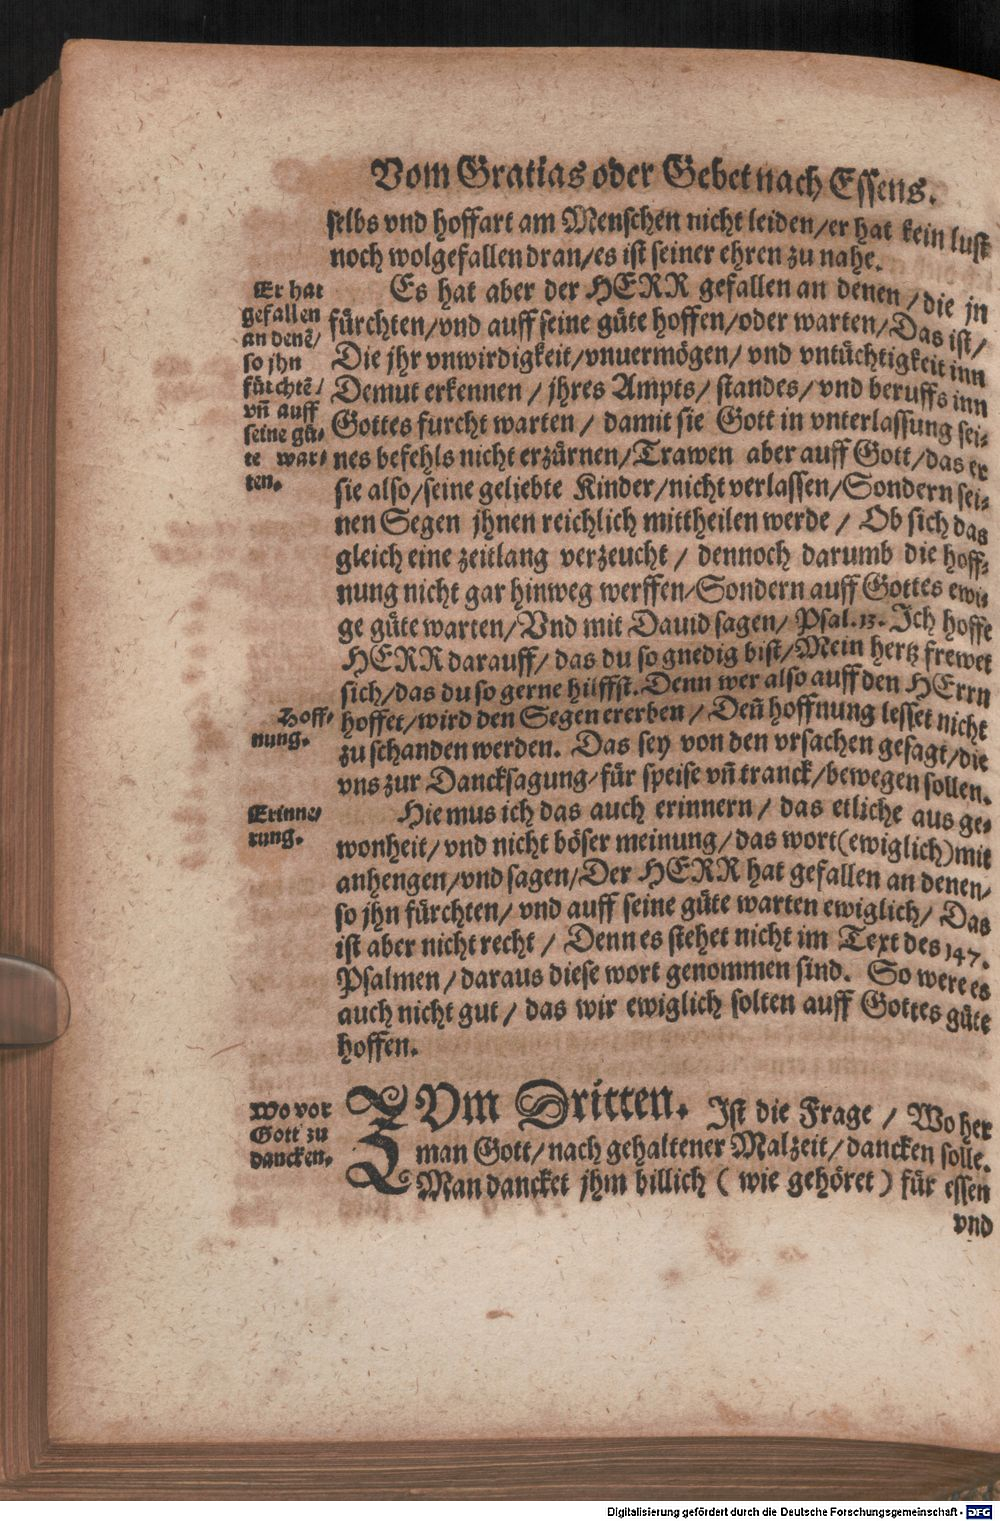 Vom Gratias oder Gebet nach Essens.
selbs vnd hoffart am Menschen nicht leiden/er hat kein lust
noch wolgefallen dran/es ist seiner ehren zu nahe.
Er hat
gefallen
an denẽ/
so jhn
fürchtẽ/
vñ auff
seine gü-
te war-
ten.
Es hat aber der HERR gefallen an denen/die jn
fürchten/vnd auff seine güte hoffen/oder warten/Das ist/
Die jhr vnwirdigkeit/vnuermögen/ vnd vntüchtigkeit inn
Demut erkennen / jhres Ampts/ standes/ vnd beruffs inn
Gottes furcht warten / damit sie Gott in vnterlassung sei-
nes befehls nicht erzürnen/Trawen aber auff Gott/das er
sie also/seine geliebte Kinder/nicht verlassen/Sondern sei-
nen Segen jhnen reichlich mittheilen werde / Ob sich das
gleich eine zeitlang verzeucht / dennoch darumb die hoff-
nung nicht gar hinweg werffen/Sondern auff Gottes ewi-
ge güte warten/Vnd mit Dauid sagen/ Psal.13. Ich hoffe
HERR darauff/ das du so gnedig bist/Mein hertz frewet
sich/das du so gerne hilffst. Denn wer also auff den HErrn
Hoff-
nung.
hoffet/wird den Segen ererben / Deñ hoffnung lesset nicht
zu schanden werden. Das sey von den vrsachen gesagt/die
vns zur Dancksagung/für speise vñ tranck/bewegen sollen.
Erinne-
rung.
Hie mus ich das auch erinnern / das etliche aus ge-
wonheit/ vnd nicht böser meinung/ das wort(ewiglich)mit
anhengen/vnd sagen/Der HERR hat gefallen an denen/
so jhn fürchten/ vnd auff seine güte warten ewiglich/ Das
ist aber nicht recht / Denn es stehet nicht im Text des 147.
Psalmen / daraus diese wort genommen sind. So were es
auch nicht gut / das wir ewiglich solten auff Gottes güte
hoffen.
Wo vor
Gott zu
dancken.
ZVm Dritten. Ist die Frage / Wo her
man Gott/ nach gehaltener Malzeit/ dancken solle.
Man dancket jhm billich ( wie gehöret ) für essen
vnd
Digitalisierung gefördert durch die Deutsche Forschungsgemeinschaft - DFG